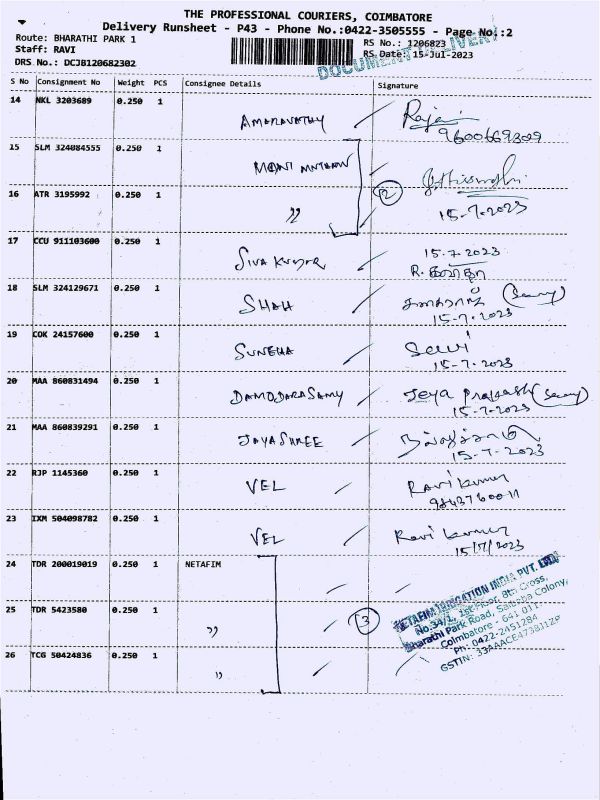 THE PROFESSIONAL COURIERS, COIMBATORE
Delivery Runsheet - P43 - Phone No.:0422-3505555 - Page No.:2
Route: BHARATHI PARK 1
RS No.: 1206823
Staff: RAVI
RS Date: 15-Jul-2023
DRS No.: DCJB120682302
DOCUMENT DELIVERY
S No Consignment No Weight PCS Consignee Details Signature
14 NKL 3203689 0.250 1 AMARAVATHY
9600669309
15 SLM 324084555 0.250 1 MONI
16 ATR 3195992 0.250 1 " 2
15-7-2023
17 CCU 911103600 0.250 1 SIVA KUMAR 15.7.2023
R.
18 SLM 324129671 0.250 1 SHAH
15-7-2023
19 COK 24157600 0.250 1 SUNEHA Selvi
15-7-2023
20 MAA 860831494 0.250 1 DAMODARASAMY Jeya Prakash
15-7-2023
21 MAA 860839291 0.250 1 JAYASHREE
15-7-2023
22 RJP 1145360 0.250 1 VEL Ravi kumar
9843760011
23 IXM 504098782 0.250 1 VEL Ravi kumar
15/7/2023
24 TDR 200019019 0.250 1 NETAFIM
25 TDR 5423580 0.250 1 " 3
26 TCG 50424836 0.250 1 "
NETAFIM IRRIGATION INDIA PVT. LTD.
No.34/1, 1st Floor, 8th Cross,
Bharathi Park Road, Saibaba Colony,
Coimbatore - 641 011
Ph: 0422-2451284